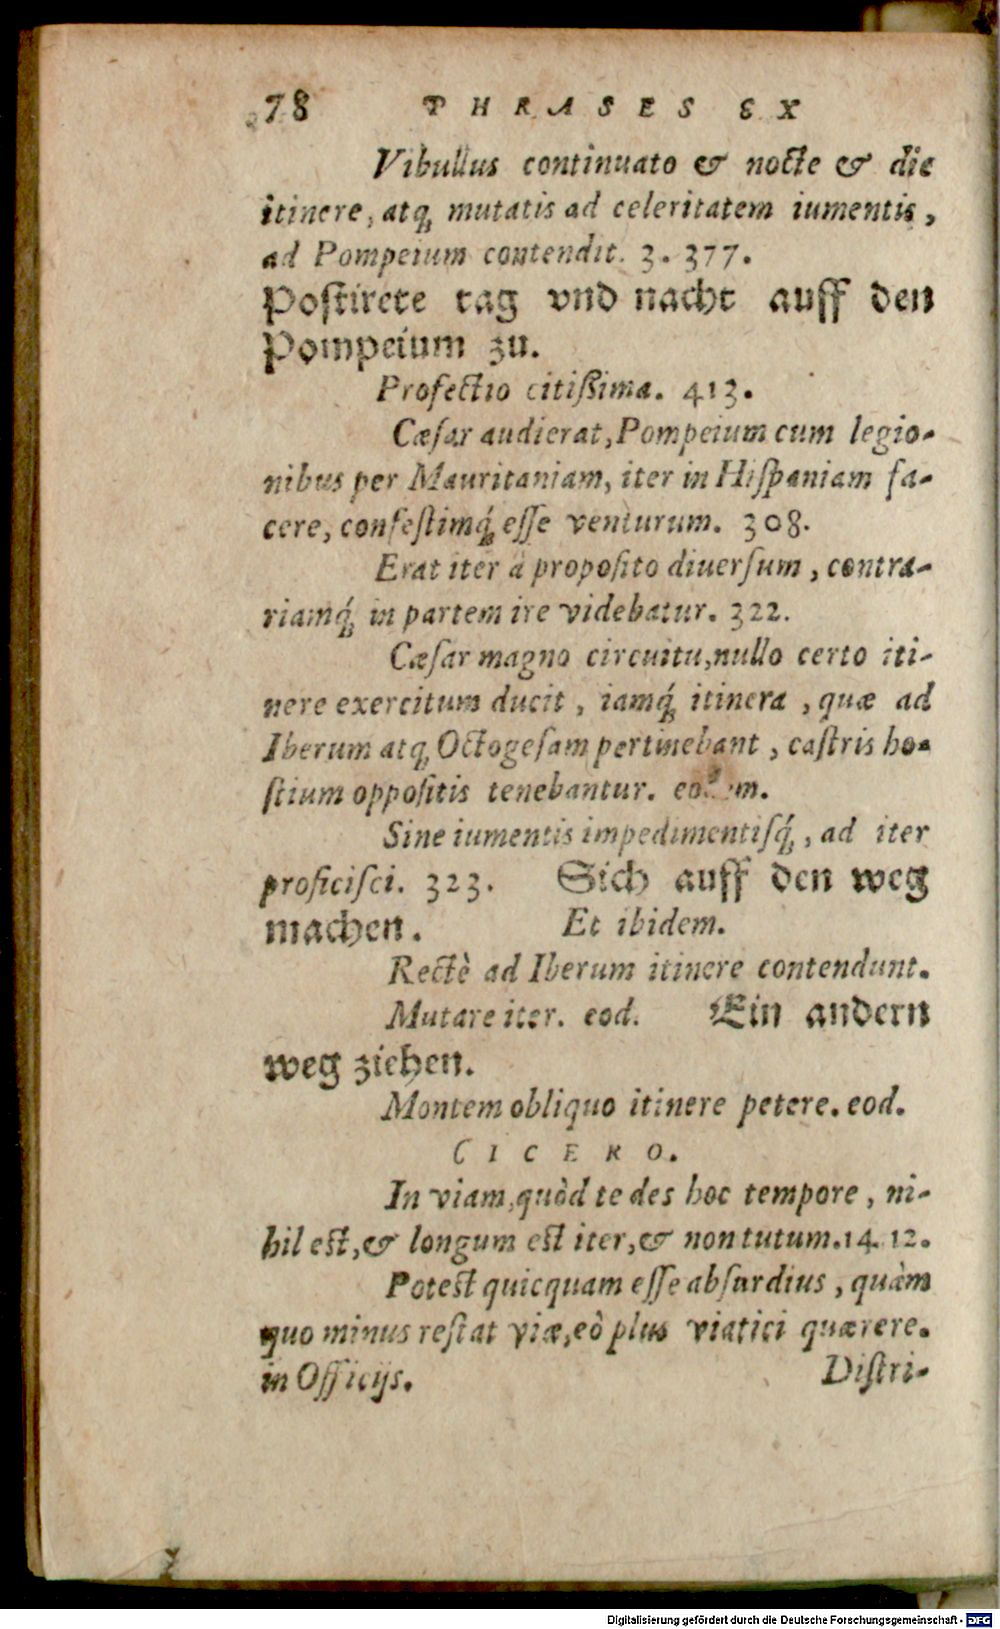 78 PHRASES EX
Vibullus continuato & nocte & die
itinere, atq; mutatis ad celeritatem iumentis,
ad Pompeium contendit. 3. 377.
Postirete tag vnd nacht auff den
Pompeium zu.
Profectio citißima. 413.
Cæſar audierat, Pompeium cum legio-
nibus per Mauritaniam, iter in Hiſpaniam fa-
cere, confeſtimq́; eſſe venturum. 308.
Erat iter à propoſito diuerſum, contra-
riamq́; in partem ire videbatur. 322.
Cæſar magno circuitu, nullo certo iti-
nere exercitum ducit, iamq́; itinera, quæ ad
Iberum atq; Octogeſam pertinebant, caſtris ho-
ſtium oppoſitis tenebantur. eodem.
Sine iumentis impedimentiſq́;, ad iter
proficiſci. 323. Sich auff den weg
machen. Et ibidem.
Rectè ad Iberum itinere contendunt.
Mutare iter. eod. Ein andern
weg ziehen.
Montem obliquo itinere petere. eod.
CICERO.
In viam, quòd te des hoc tempore, ni-
hil eſt, & longum eſt iter, & non tutum. 14. 12.
Poteſt quicquam eſſe abſurdius, quàm
quo minus reſtat viæ, eò plus viatici quærere.
in Officijs. Diſtri-
Digitalisierung gefördert durch die Deutsche Forschungsgemeinschaft - DFG